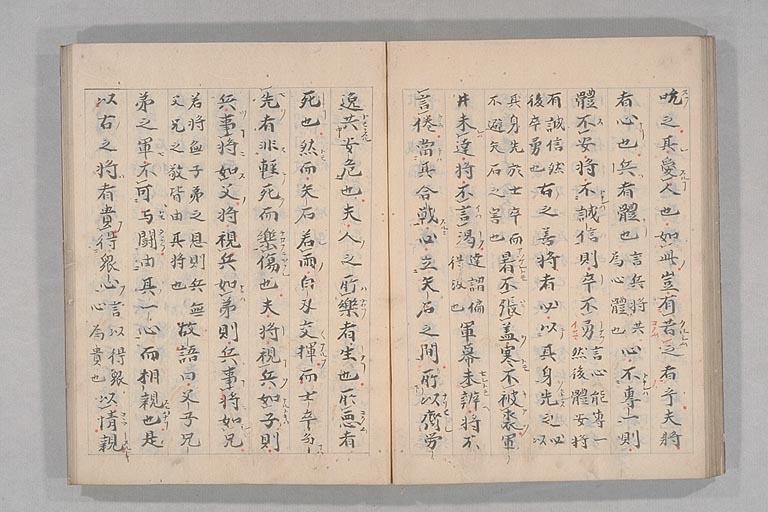 吮之其愛人也如此豈有苦之者乎夫將
者心也兵者體也言兵將共爲心體也心不專一則
體不安將不誠信則卒不勇言心能專一然後體安將
有誠信然後卒勇也古之善將者必以其身先之以
其身先於士卒而不避矢石之害也暑不張盖寒不被裘軍
井未達將不言渴達謂偏得汲也軍幕未辨將不
言倦當其合戰必立矢石之間所以齊勞
逸共安危也夫人之所樂者生也所惡者
死也然而矢石若雨白刃交揮而士卒
先者非輕死而樂傷也夫將視兵如子則
兵事將如父將視兵如弟則兵事將如兄
若將無子弟之恩則兵無父兄之敬皆由其將也故語曰父子兄
弟之軍不可与闘由其一心而相親也是
以古之將者貴得衆心言以得衆心爲貴也以情親